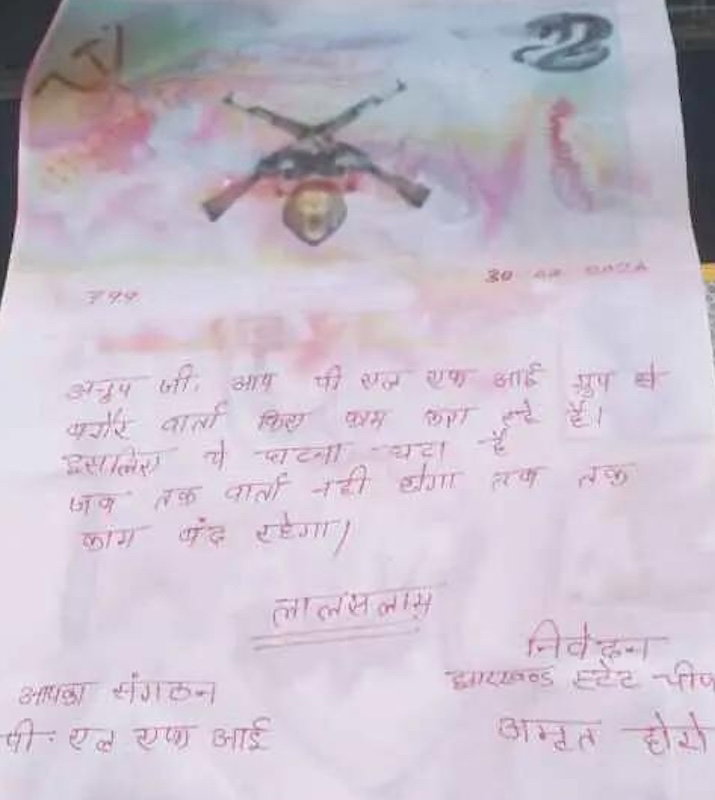 799
30
अनुप जी, आप पी एल एफ आई ग्रुप से
बगैर वार्ता किए काम करा रहे हैं।
इसलिए ये घटना घटा है
जब तक वार्ता नही होगा तब तक
काम बंद रहेगा।
लालसलाम
निवेदन
आपका संगठन
झारखण्ड स्टेट चीफ
पी. एल एफ आई
अमृत होरो